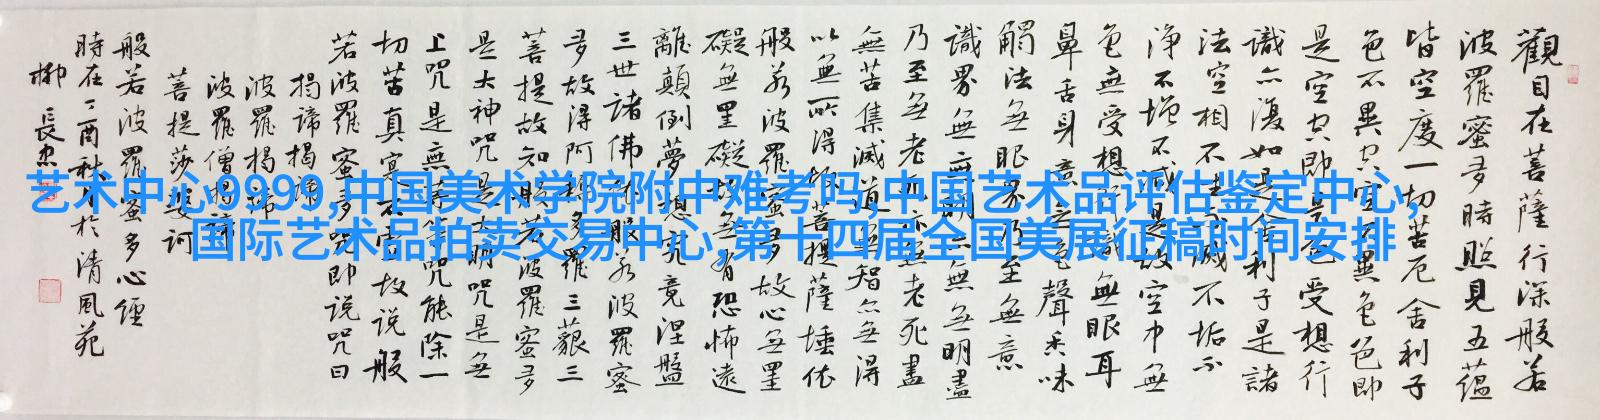 艺术中心9999,中国美术学院附中难考吗,中国艺术品评估鉴定中心,
国际艺术品拍卖交易中心,第十四届全国美展征稿时间安排
觀自在菩薩行深般若
波羅蜜多時照見五蘊
皆空度一切苦厄舍利子
色不異空空不異色色即
是空空即是色受想行
識亦復如是舍利子是諸
法空相不生不滅不垢不
淨不增不減是故空中無
色無受想行識無眼耳
鼻舌身意無色聲香味
觸法無眼界乃至無意
識界無無明亦無無明盡
乃至無老死亦無老死盡
無苦集滅道無智亦無得
以無所得故菩提薩埵依
般若波羅蜜多故心無罣
礙無罣礙故無有恐怖遠
離顛倒夢想究竟涅盤
三世諸佛依般若波羅蜜
多故得阿耨多羅三藐三
菩提故知般若波羅蜜多
是大神咒是大明咒是無
上咒是無等等咒能除一
切苦真實不虛故說般
若波羅蜜多咒即說咒曰
揭諦揭諦
波羅揭諦
波羅僧揭諦
菩提莎婆訶
般若波羅蜜多心經
時在丁酉秋於清風苑
柳長忠